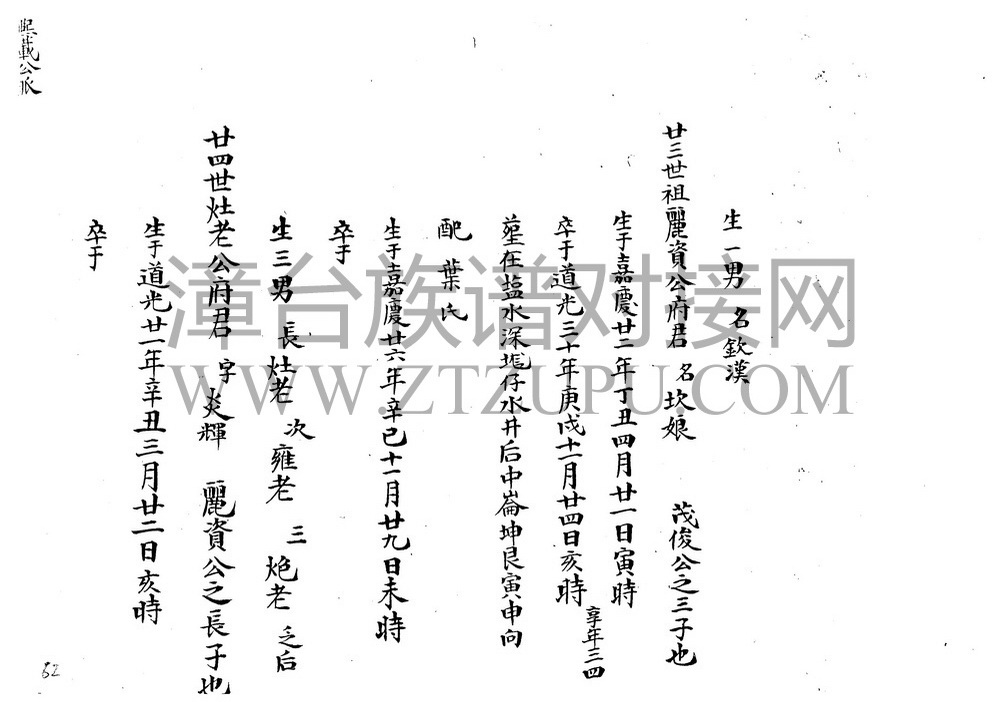 生一男 名欽漢
廿三世祖麗資公府君 名坎娘 茂俊公之三子也
生于嘉慶廿二年丁丑四月廿一日寅時
卒于道光三十年庚戌十一月廿四日亥時 享年三四
塋在盐水深坔仔水井后中崙坤艮寅申向
配葉氏
生于嘉慶廿六年辛巳十一月廿九日未時
卒于
生三男 長灶老 次雍老 三炮老 乏后
廿四世灶老公府君 字炎輝 麗資公之長子也
生于道光廿一年辛丑三月廿二日亥時
卒于
載公派
62
漳台族谱对接网
WWW.ZTZUPU.COM